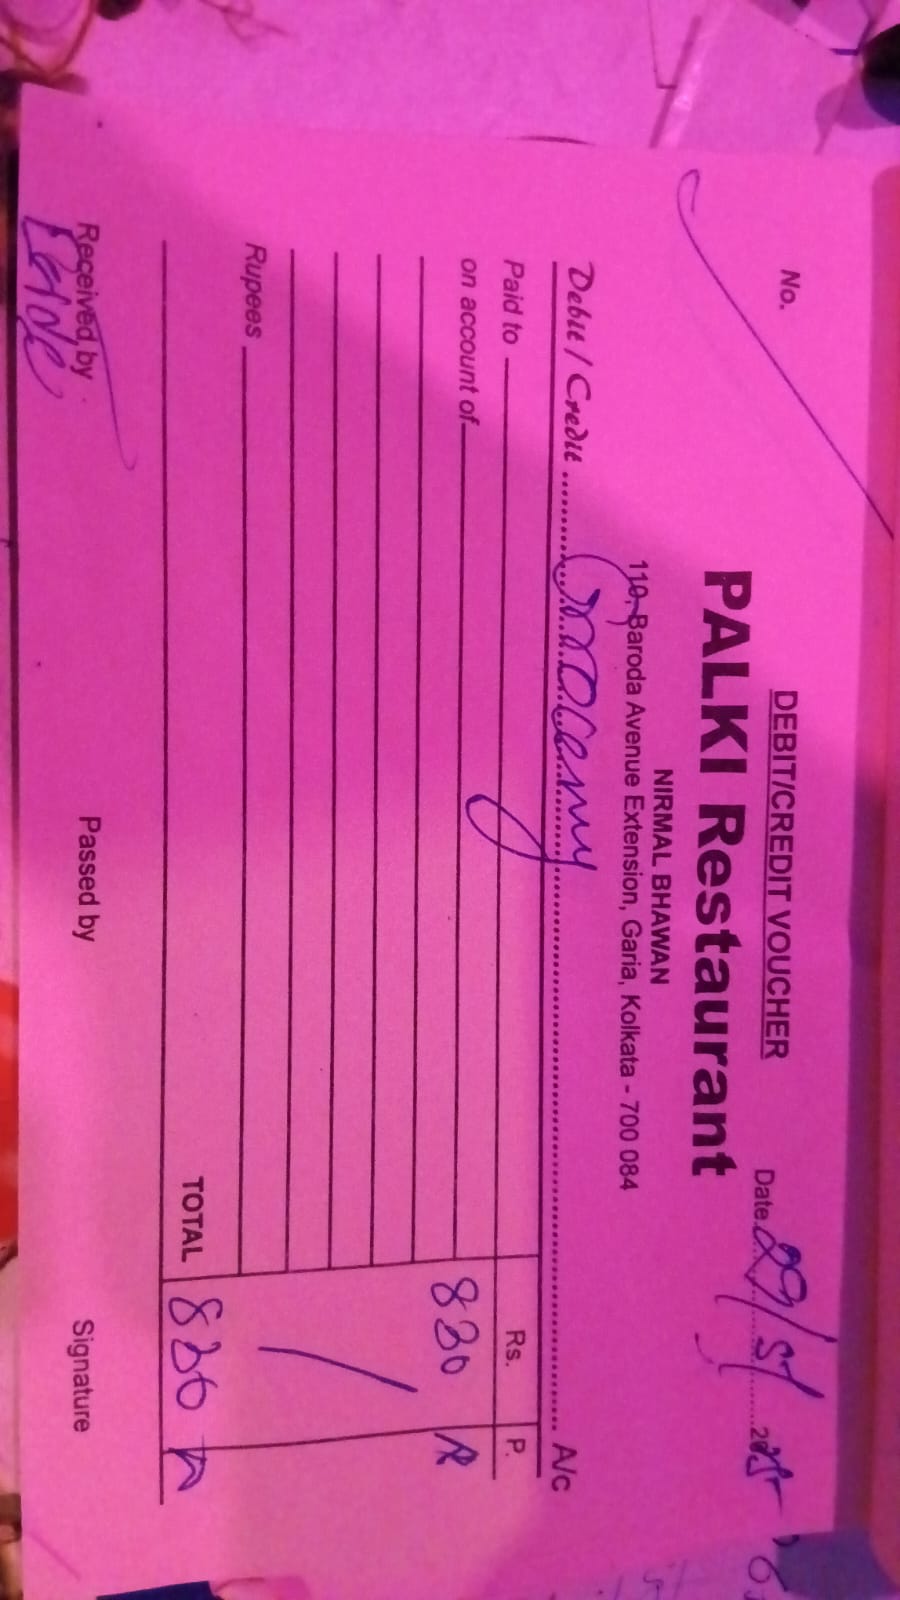 DEBIT/CREDIT VOUCHER
No.
Date 29/5/2025
PALKI Restaurant
NIRMAL BHAWAN
110, Baroda Avenue Extension, Garia, Kolkata - 700 084
Debit / Credit Grocery A/c
Paid to Rs. P.
on account of 830
Rupees
TOTAL 830
Received by Passed by Signature